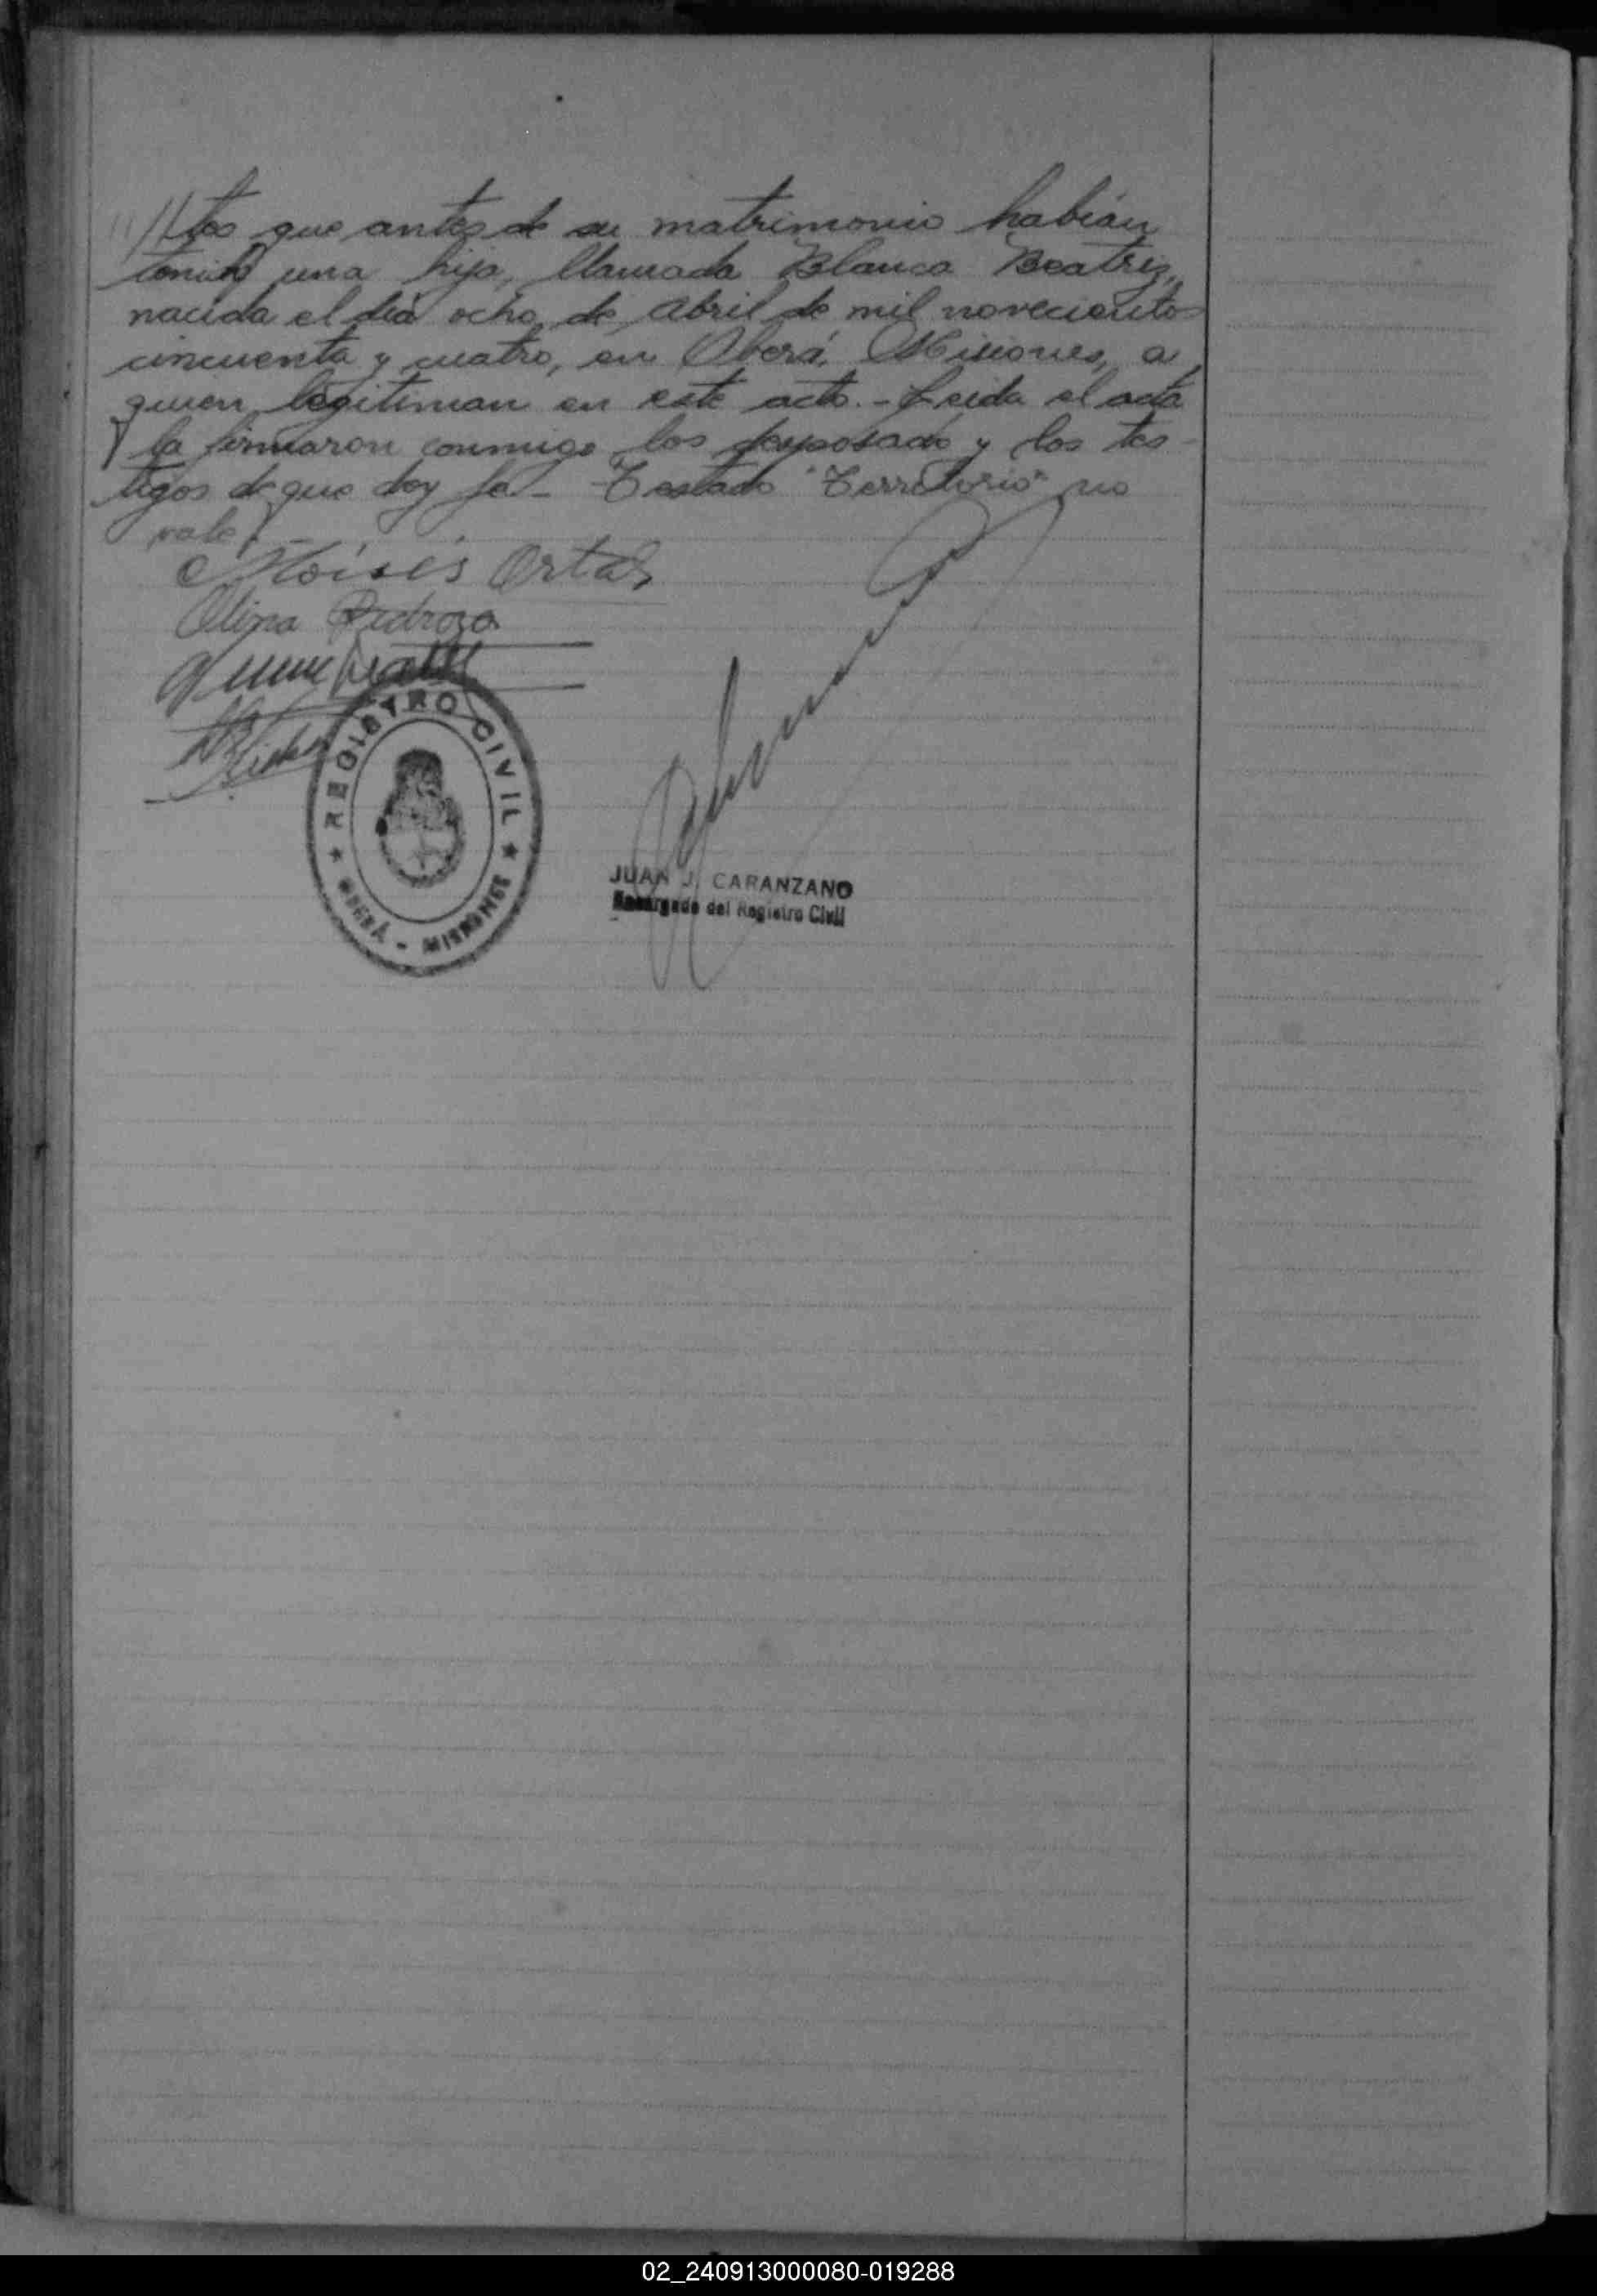 //tes que antes de su matrimonio habían
tenido una hija, llamada Blanca Beatriz,
nacida el día ocho de Abril de mil novecientos
cincuenta y cuatro, en Oberá, Misiones, a
quien legitiman en este acto.- Leida el acta
la firmaron conmigo los desposado y los tes-
tigos de que doy fe- Testado "Territorio" no
vale.-
Moisés Ortaz
Olipa Pedrozo
REGISTRO CIVIL
OBERÁ - MISIONES
JUAN J. CARANZANO
Encargado del Registro Civil
02_240913000080-019288